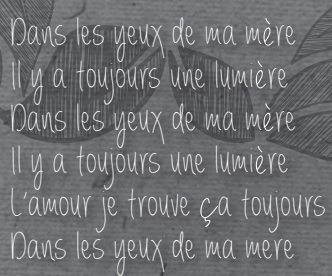 Dans les yeux de ma mère
Il y a toujours une lumière
Dans les yeux de ma mère
Il y a toujours une lumière
L'amour je trouve ça toujours
Dans les yeux de ma mere